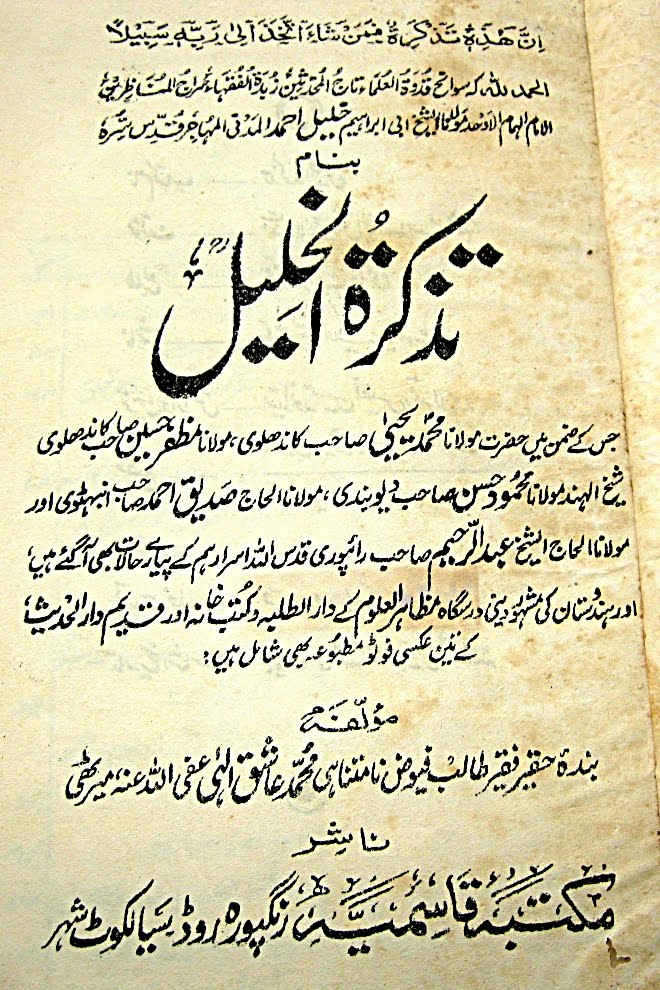 ان هذه تذكرة فمن شاء اتخذ الى ربه سبيلا
الحمد للہ کہ سوانح قدوة العلماء تاج المحدثین زبدة الفقہاء سراج المناظرین
الامام الہمام الاوحد مولانا الشیخ ابی ابراہیم خلیل احمد المدنی المہاجر قدس سرہ
بنام
تذکرۃ الخلیل
جس کے ضمن میں حضرت مولانا محمد یحییٰ صاحب کاندھلوی، مولانا مظفر حسین صاحب کاندھلوی
شیخ الہند مولانا محمود حسن صاحب دیوبندی، مولانا الحاج صدیق احمد صاحب انبہٹوی اور
مولانا الحاج الشیخ عبدالرحیم صاحب رائپوری قدس اللہ اسرارہم کے پیارے حالات بھی آگئے ہیں
اور ہندوستان کی مشہور دینی درسگاہ مظاہر العلوم کے دار الطلبہ و کتب خانہ اور قدیم دار الحدیث
کے تین عکسی فوٹو مطبوعہ بھی شامل ہیں:
مؤلفہ
بندۂ حقیر فقیر طالب فیوض نامتناہی محمد عاشق الٰہی عفی اللہ عنہ، میرٹھی
ناشر
مکتبہ قاسمیہ، رنگپورہ روڈ سیالکوٹ شہر